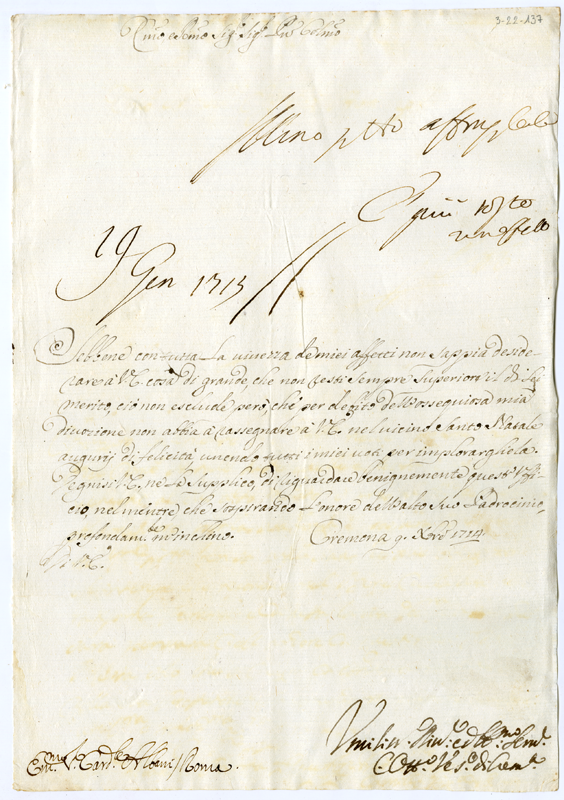 3-22-137
Em̃o e Rmo Sig.r Sig.r Pñ Colmo
19
Gen 1715
Sebbene con tutta la vivezza de miei affetti non sappia deside-
rare à V.E. cosa di grande, che non resti sempre superiore il di Lei
merito, ciò non esclude però, che per debito dell'ossequiosa mia
divozione non abbia à rassegnare à V.E. nel vicino Santo Natale
augurij di felicità unendo tutti i miei voti per implorargliela.
Degnisi V.E., ne La supplico, di riguardare benignemente quest'Uffi-
cio, nel mentre che sospirando l'onore dell'alto Suo Padrocinio,
profondam.te m'inchino. Cremona 9. Xbre 1714
Di V.E.
Umiliss.o Div.o ed Obb.mo Serv.e
Em.mo S.r Card.le Albani / Roma.
C. Ott.o Ves.o di Crem.a